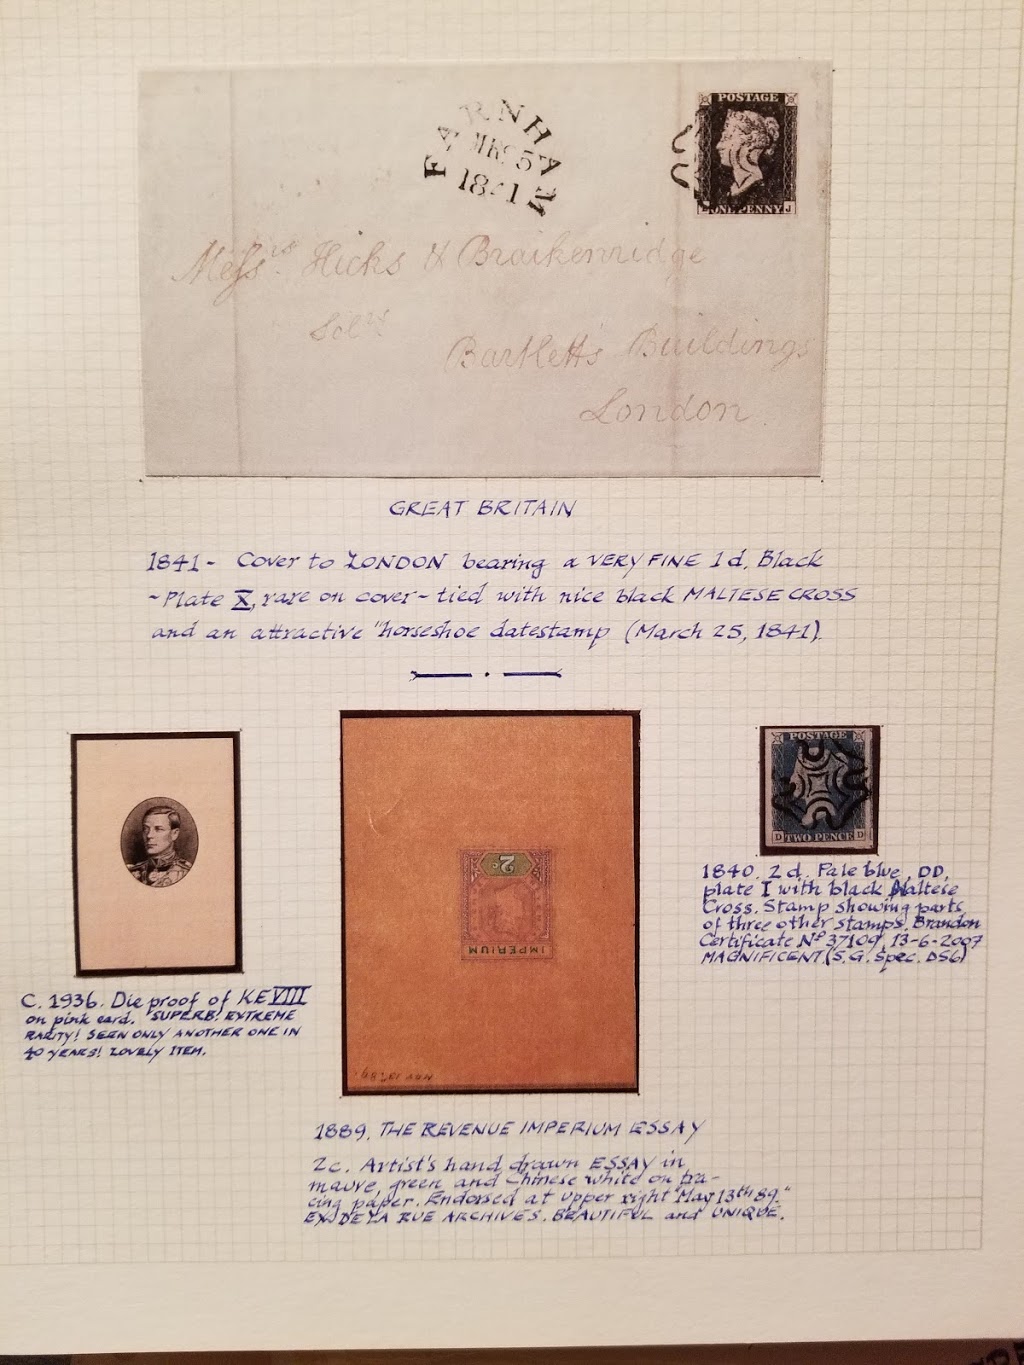 FARNHAM
MR 25
1841
POSTAGE
ONE PENNY J
Messrs. Hicks & Braikenridge
Solrs
Bartlett's Buildings
London
GREAT BRITAIN
1841 - Cover to LONDON bearing a VERY FINE 1d. Black
- Plate X, rare on cover - tied with nice black MALTESE CROSS
and an attractive "horseshoe datestamp (March 25, 1841).
C. 1936. Die proof of KEVIII
on pink card. SUPERB! EXTREME
RARITY! SEEN ONLY ANOTHER ONE IN
40 YEARS! LOVELY ITEM.
2c.
IMPERIUM
1889. THE REVENUE IMPERIUM ESSAY
2c. Artist's hand drawn ESSAY in
mauve, green and Chinese white on tra-
cing paper. Endorsed at upper right "May 13th 89."
EX DE LA RUE ARCHIVES. BEAUTIFUL and UNIQUE.
POSTAGE
D TWO PENCE D
1840. 2d. Pale blue, DD,
plate I with black Maltese
Cross. Stamp showing parts
of three other stamps. Brandon
Certificate Nº 37109, 13-6-2007
MAGNIFICENT. (S.G. Spec. DS6)